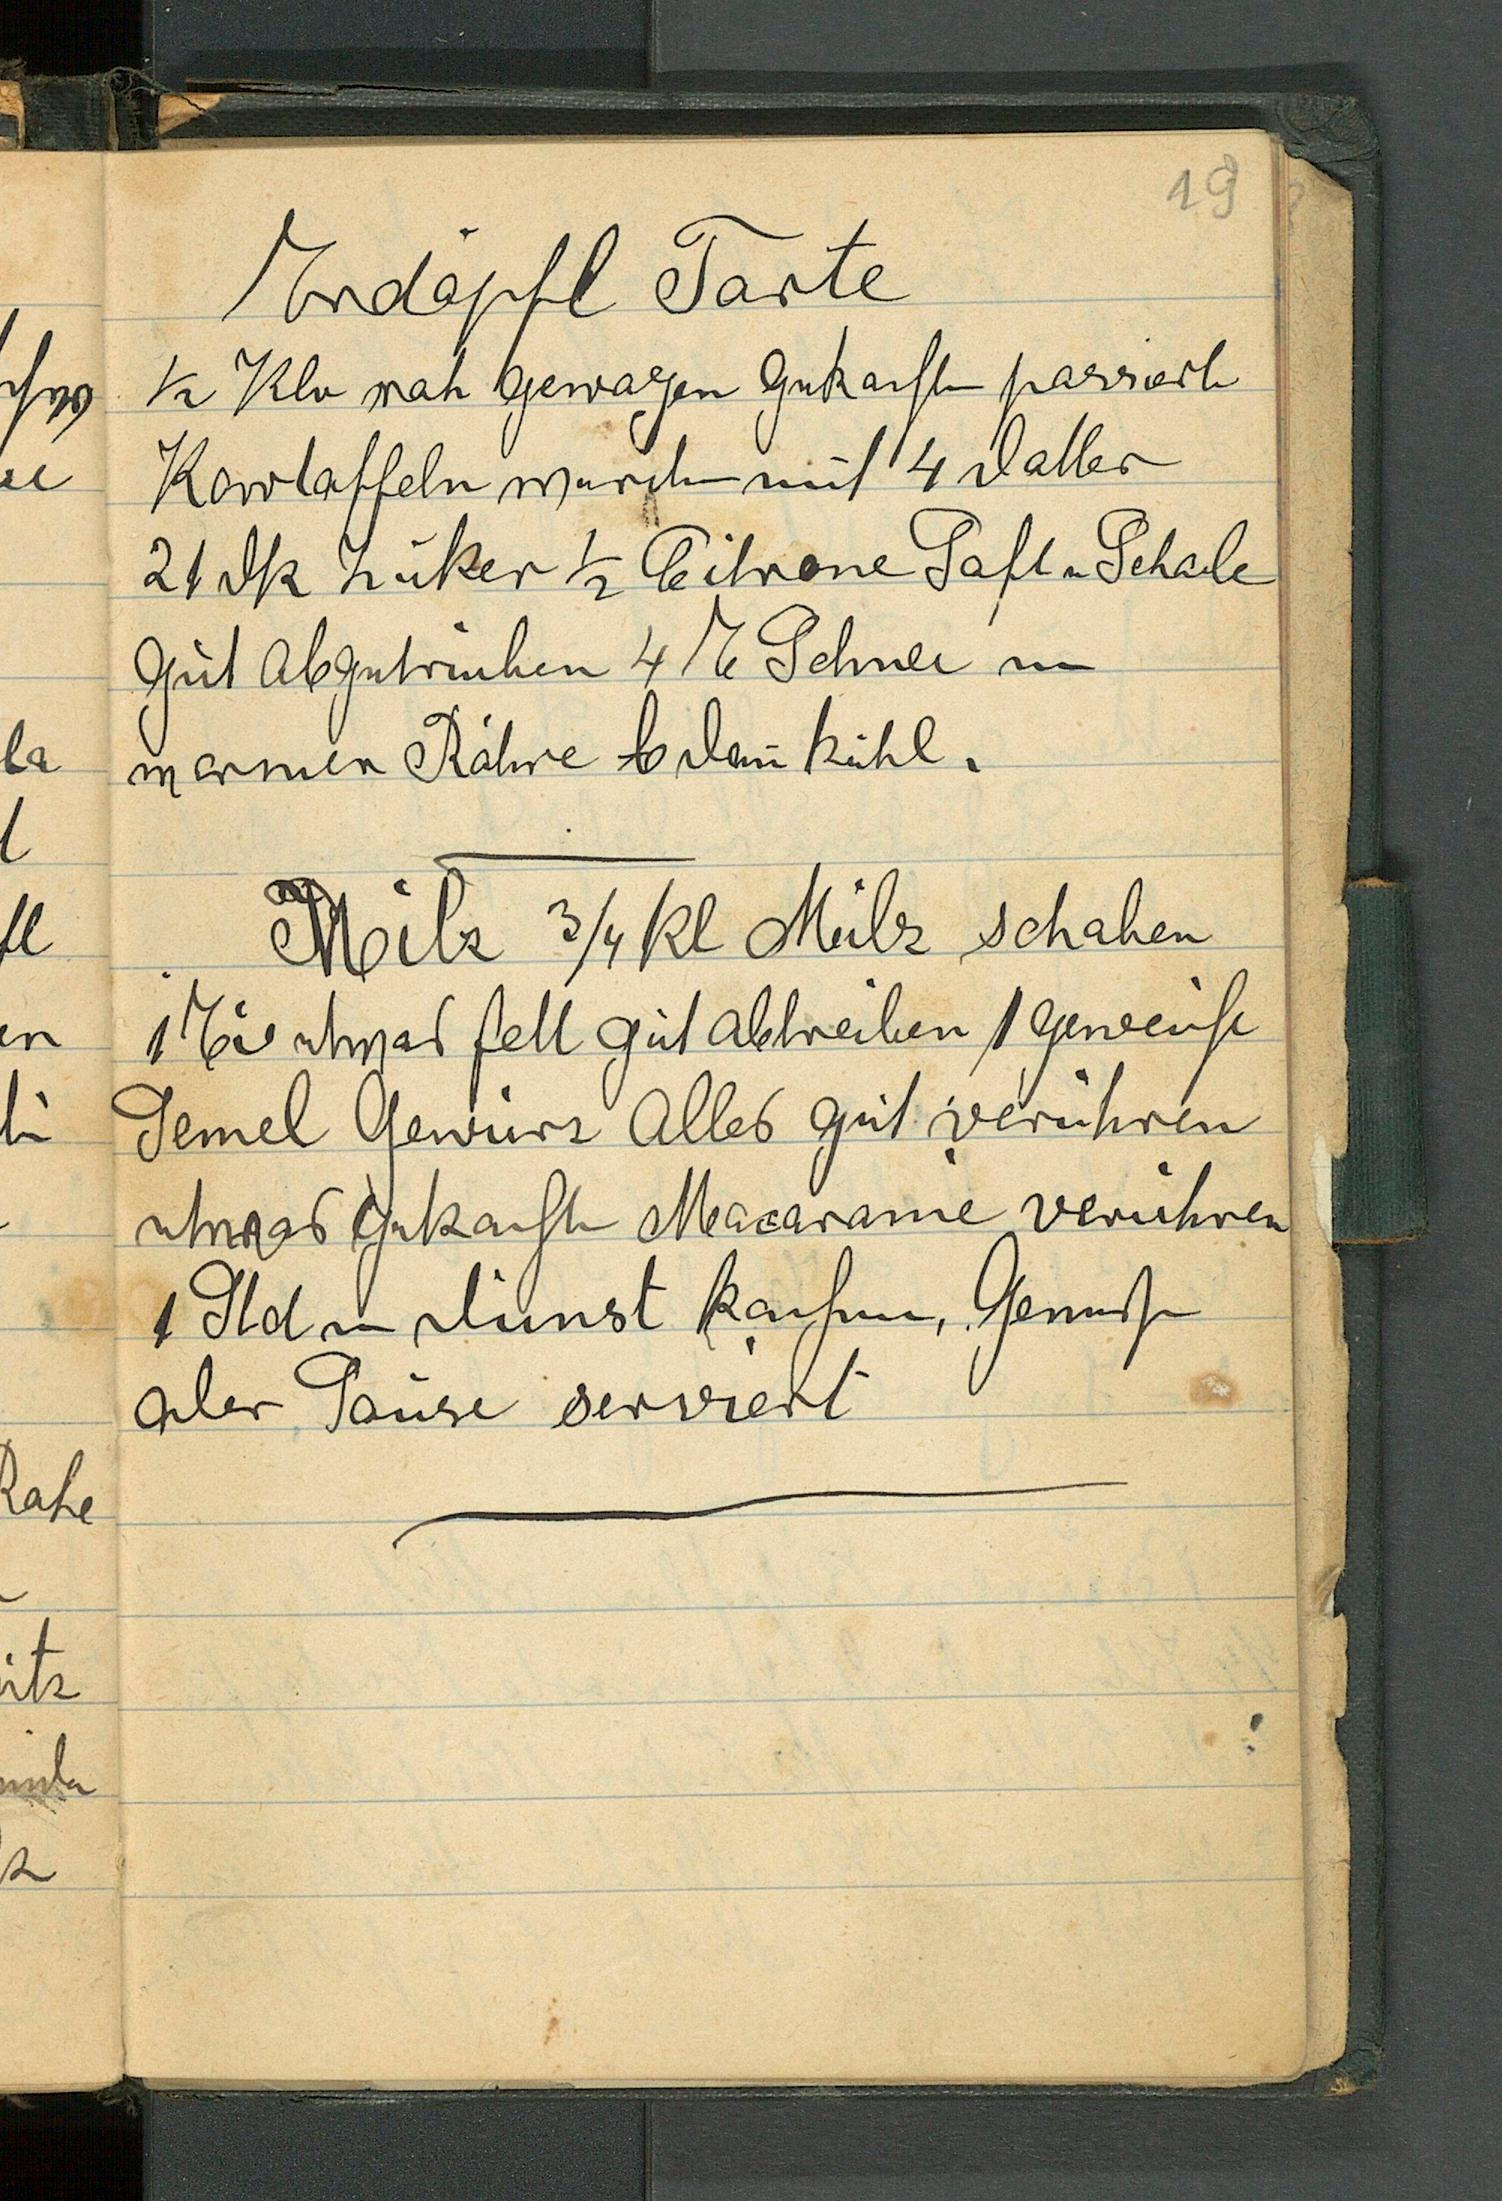 19
Erdäpfl Torte
½ Klo roh gewogen gekochte passierte
Korrtaffeln werden mit 4 Dotter
21 Dk Zuker ½ Citrone Saft u Schale
gut abgetrieben 4 E Schnee in
warmer Röhre dan kühl.
Milz 3/4 Kl Milz schaben
1 Ei etwas fett gut abtreiben 1 geweichte
Semel Gewürz alles gut verühren
etwas gekochte Macaranie verühren
1 Std in Dunst kochen, Gemüse
oder Sause serviert